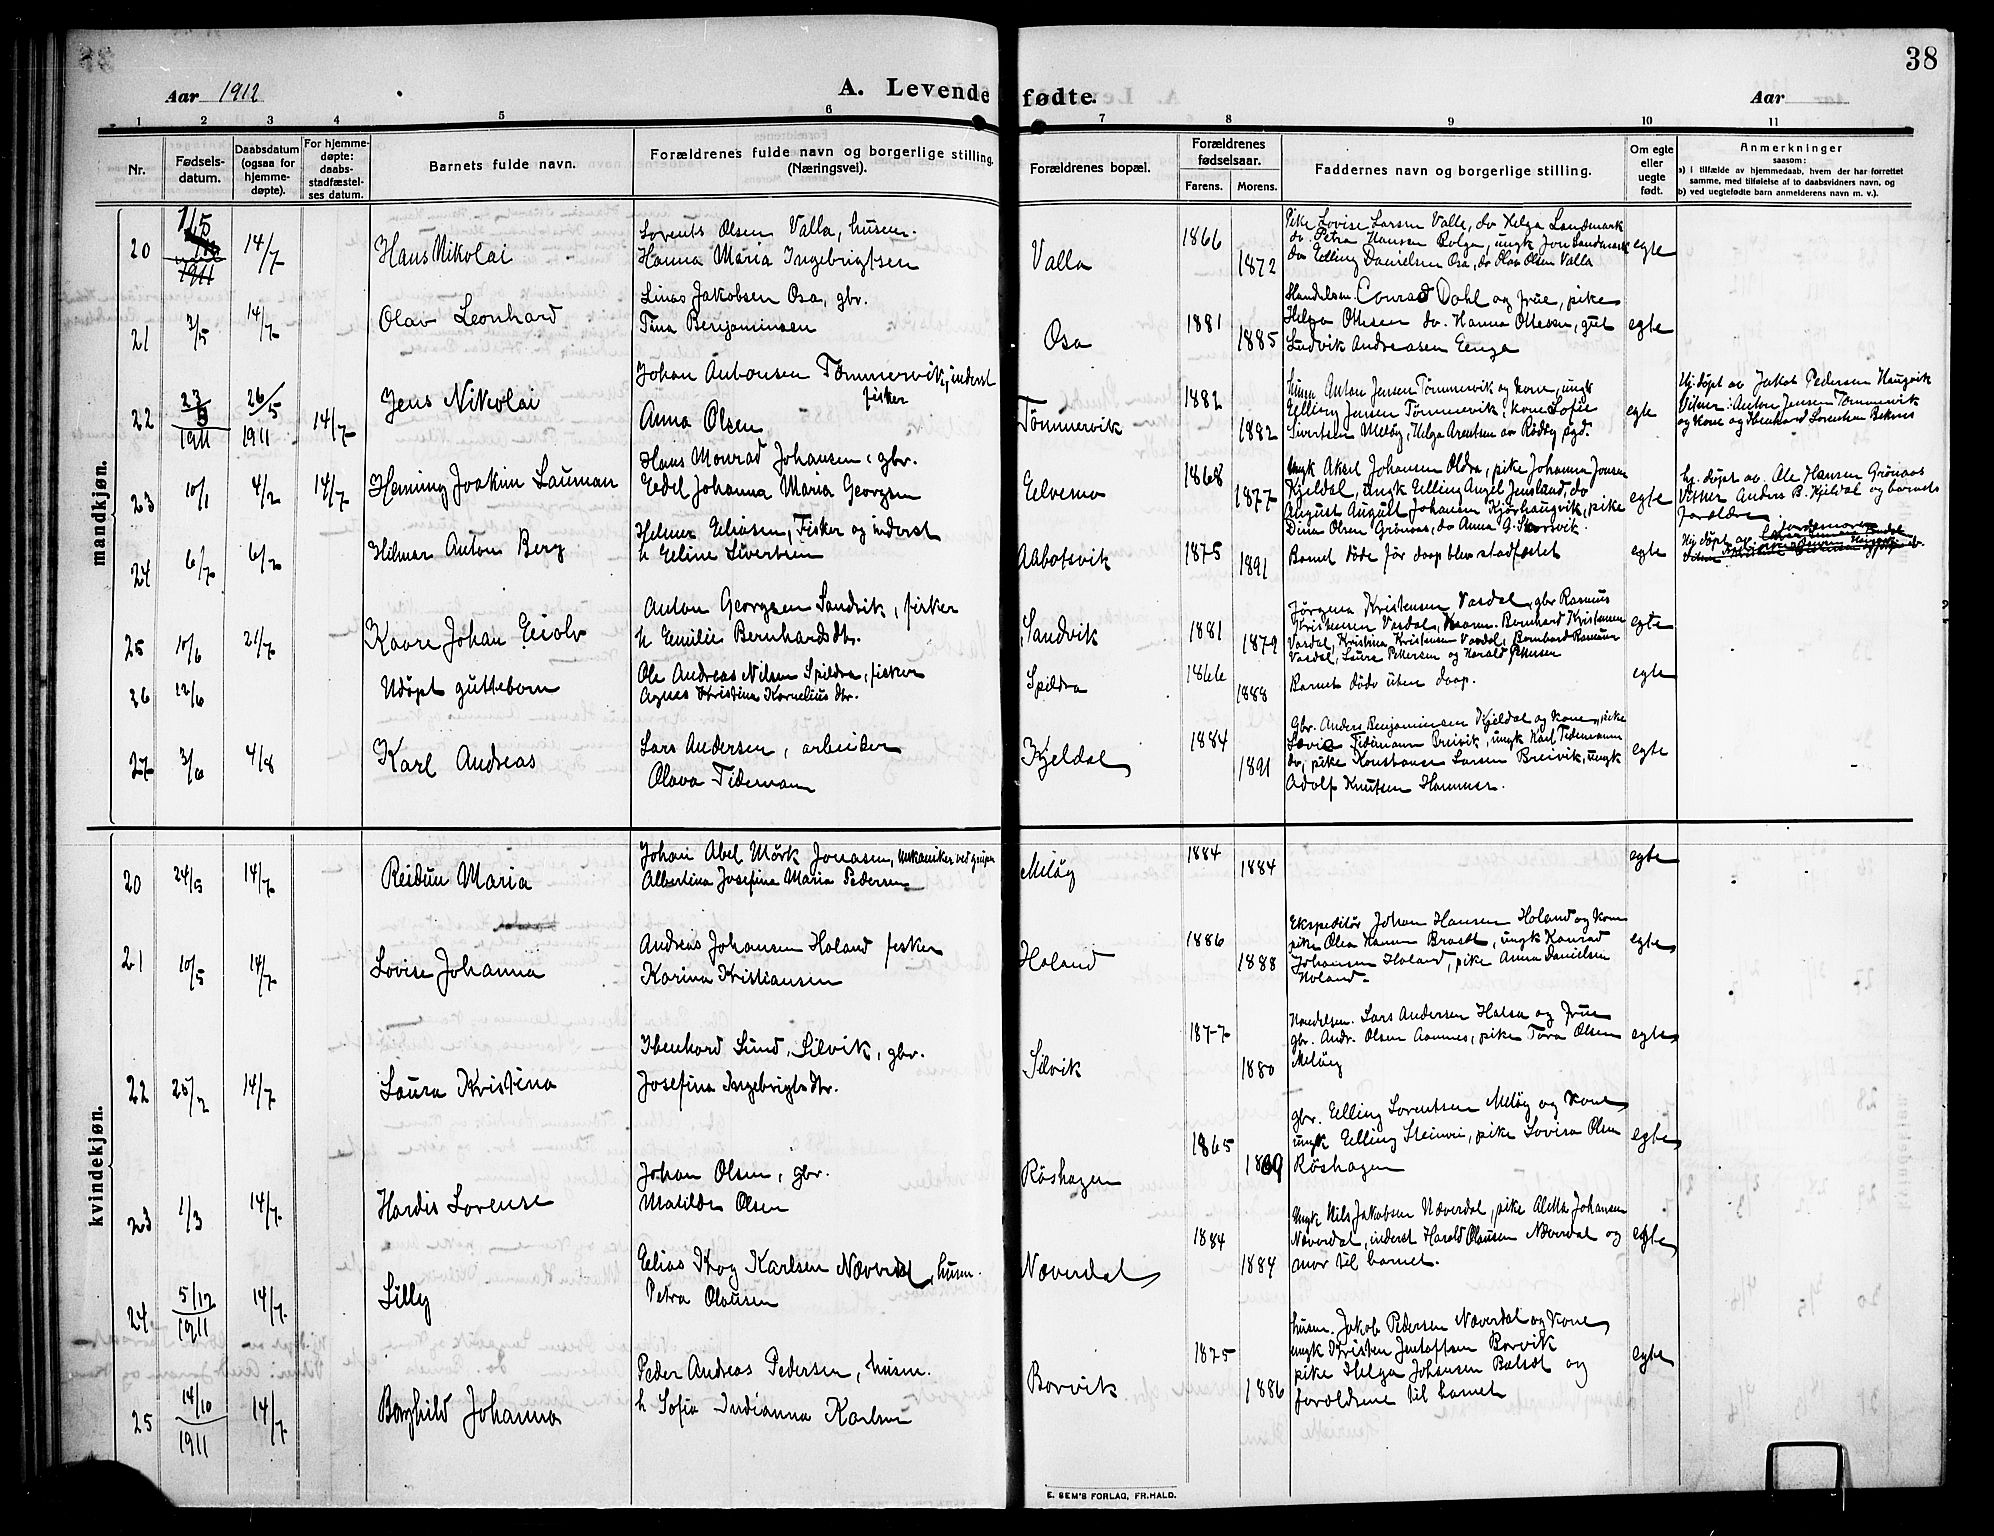 38
Aar 1912
A. Levende fødte.
Aar
1 2 3 4 5 6 7 8 9 10 11
Nr.
Fødsels-
datum.
Daabsdatum
(ogsaa for
hjemme-
døpte).
For hjemme-
døpte:
daabs-
stadfæstel-
ses datum.
Barnets fulde navn.
Forældrenes fulde navn og borgerlige stilling.
(Næringsvei).
Forældrenes bopæl.
Forældrenes
fødselsaar.
Farens. Morens.
Faddernes navn og borgerlige stilling.
Om egte
eller
uegte
født.
Anmerkninger
saasom:
a) i tilfælde av hjemmedaab, hvem der har forrettet
samme, med tilføielse af to daabsvidners navn, og
b) ved uegtefødte barn anmelderens navn m. v.).
mandkjøn.
20 1/5 14/7 Hans Nikolai
Lorents Olsen Valla, husm.
Hanna Maria Ingebrigtsen
Valla 1866 1872
Pike Lovise Larsen Valle, do Helga Landmark
do Petra Hansen Bolga, ungk Jon Landmark
do Elling Danielsen Osa, do Olav Olsen Valla
egte
21 3/5 14/7 Olav Leonhard
Linas Jakobsen Osa, gbr.
Tina Benjaminsen
Osa 1881 1885
Handelsm. Conrad Dahl og frue, pike
Helga Ottesen do. Hanna Ottesen, gut
Ludvik Andreasen Eenga
egte
22 23/5 1911 26/5 1911 14/7 Jens Nikolai
Johan Antonsen Tømmervik, inderst
fisker
Anna Olsen
Tømmervik 1882 1882
husm Anton Jensen Tømmervik og kone, ungk
Elling Jensen Tømmervik, kone Sofie
Sivertsen Meløy, Helga Arentsen av Rødøy sgd.
egte
Hj. døpt av Jakob Pedersen Haugvik
Vitner: Anton Jensen Tømmervik
og kone og Ibenhard Lorentsen
23 10/1 4/2 14/7 Heming Joakim Lauman
Hans Monrad Johansen, gbr.
Eedel Johanna Maria Georgsen
Eelvemo 1868 1877
Ungk Aksel Johansen Oldra, pike Johanna Jensen
Kjeldal, ungk Elling Angel Jensland, do
August August Johansen Kjørhaugvik, pike
Dina Olsen Grønaas, do Anna G. Storvik.
egte
hj. døpt av. Ole Hansen Grønaas
Vitner Anders B. Kjeldal og barnets
forældre
24 6/7 6/2 Hilmar Antons Berg
Helmer Eliasen, Fisker og inderst
h Eeline Sivertsen
Aabotsvik 1875 1891
Barnet døde før daap blev stadfæstet
egte
Hj. døpt av jordemoren
25 10/6 21/7 Kaare Johan Eeiolv
Anton Georgsen Sandvik, fisker
h Emilie Bernhards dtr.
Sandvik 1881 1879
Jørgine Kristensen Vasdal, gbr Rasmus
Kristensen Vasdal, Bernhard Kristensen
Vasdal, Kristina Kristensen Vasdal, Bernhard Rasmussen
Vasdal, Laura Pettersen og Harald Pettersen
egte
26 12/6 Udøpt guttebarn
Ole Andreas Nilsen Spildra, fisker
Agnes Kristina Kornelius dtr.
Spildra 1866 1888
Barnet døde uten daap.
egte
27 3/6 4/8 Karl Andreas
Lars Andersen, arbeider
Olava Tideman
Kjeldal 1884 1891
Gbr. Anders Benjaminsen Kjeldal og kone, pike
Lovise Tidemann Breivik, ungk Karl Tidemann
do, pike Konstanse Larsen Breivik, ungk
Adolf Knutsen Hammer.
egte
kvindekjøn.
20 24/5 14/7 Reidun Maria
Johan Abel Mørk Jonasen, mekaniker ved gruven
Albertina Josefina Maria Pedersen
Meløy 1884 1884 egte
21 10/5 14/7 Lovise Johanna
Andreas Johansen Holand fisker
Karina Kristiansen
Holand 1886 1888
Ekspeditør Johan Hansen Holand og kone
pike Olea Hansen Brandt, ungk Konrad
Johansen Holand, pike Anna Danielsen
Holand
egte
22 25/2 14/7 Laura Kristina
Ibenhard Lund, Silvik, gbr.
Josefina Ingebrigts dtr.
Silvik 1877 1880
Handelsm. Lars Andersen Halsa og frue
gbr. Andr. Olsen Aamnes, pike Tora Olsen
Meløy
egte
23 1/3 14/7 Hardis Lorense
Johan Olsen, gbr.
Matilde Olsen
Røshagen 1865 1869
gbr. Elling Lorentsen Meløy og kone,
ungk Elling Steinvei, pike Lovisa Olsen
Røshagen
egte
24 5/12 1911 14/7 Lilly
Elias Skog Karlsen Næverdal, husm.
Petra Olausen
Næverdal 1884 1884
Ungk Nils Jakobsen Næverdal, pike Aletta Johansen
Næverdal, inderst Harald Olausen Næverdal og
mor til barnet.
egte
25 14/10 1911 14/7 Borghild Johanna
Peder Andreas Pedersen, husm.
h Sofia Indianna Karlsen
Borvik 1875 1886
husm. Jakob Pedersen Næverdal og kone,
ungk Kristen Jentoftsen Borvik
pike Helga Johansen Balsdt og
forældrene til barnet
egte
E. SEM'S FORLAG, FR.HALD.